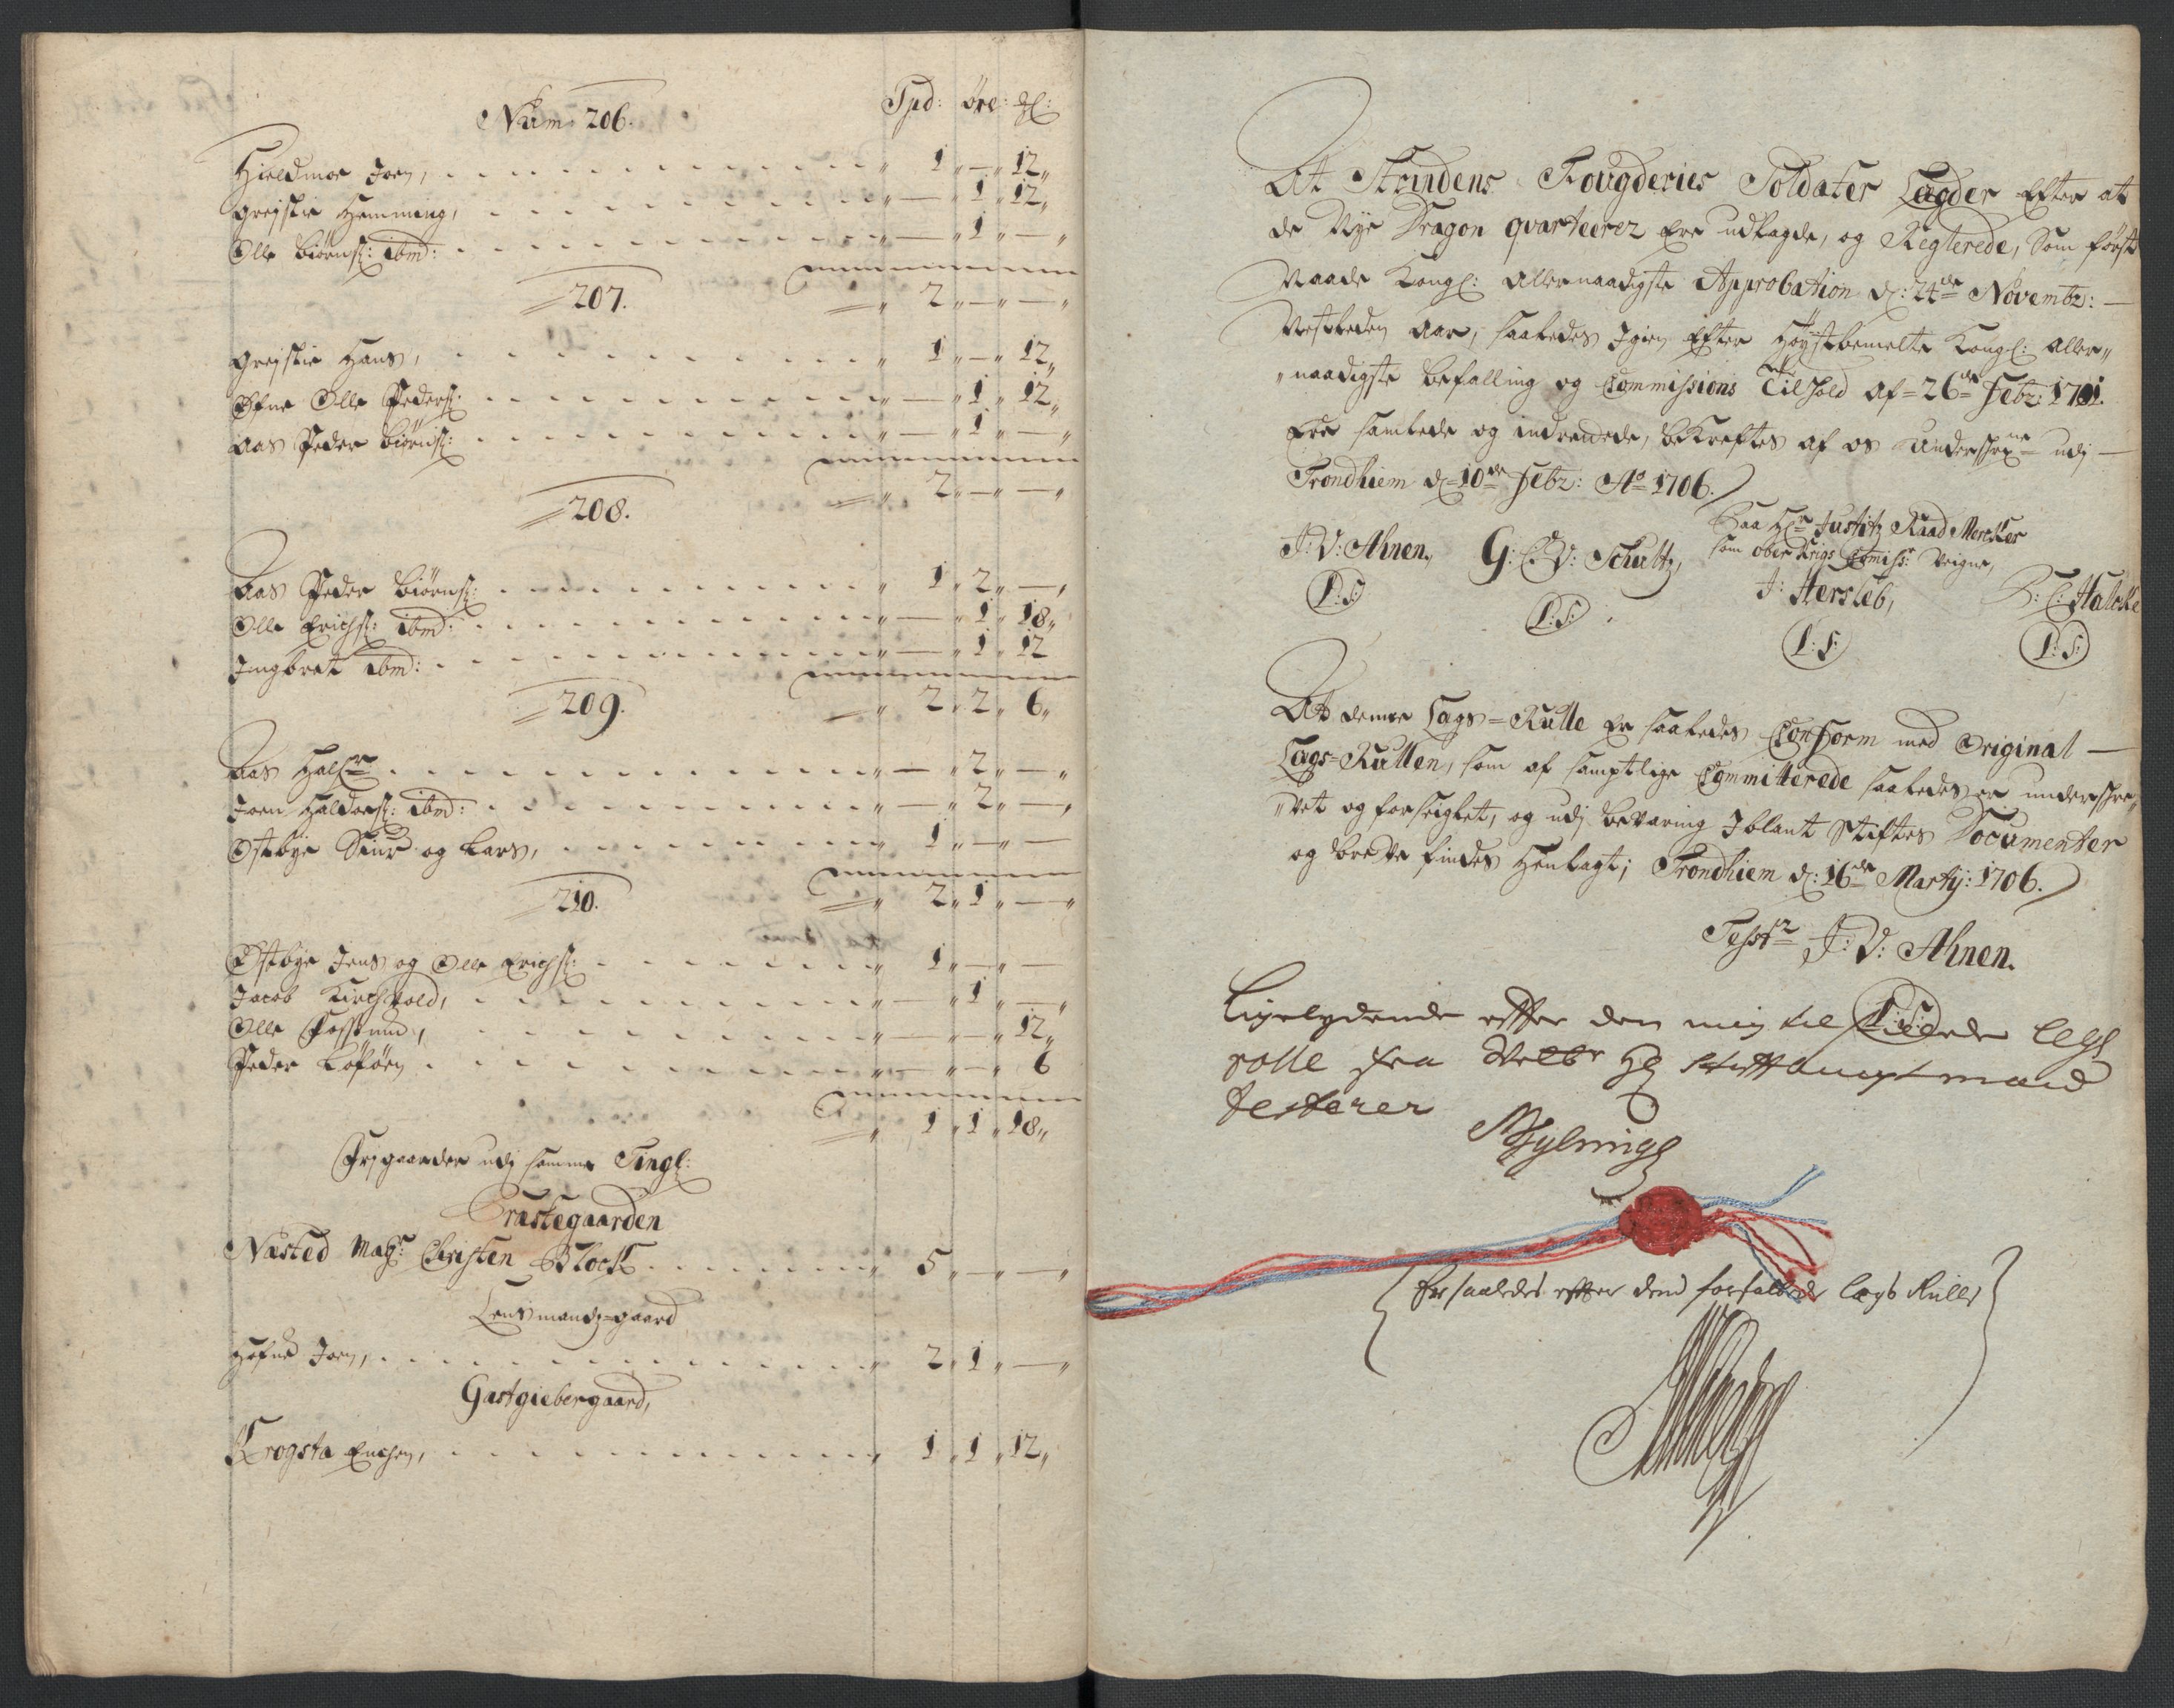 Spd: öre: ßl:
Num: 206.
Hieldmoe Joen, 1 — 12
Grejstie Hemming, — 1 12
Olle Biørns: ibm: — 1 —
2 — —
207.
Grejstie Hans, 1 — 12
Øfne Olle Peders: — 1 12
Aas Peder Biørns: — 1 —
2 — —
208.
Aas Peder Biørns: 1 2 —
Olle Erichs: ibm: — 1 18
Ingbret ibm: — 1 12
2 2 6
209.
Aas Half — 2 —
Joen Haldors: ibm: — 2 —
Østbye Siur og Lars, 1 — —
2 1 —
210.
Østbye Jens og Olle Erichs: 1 — —
Jacob Kirchvold, — 1 —
Olle Fossmo, — — 12
Peder Løføen — — 6
1 1 18
Frj gaarder udj samme Tingl:
Præstegaarden
Næsted Mag: Christen Block 5 — —
Lensmandz-gaard
Hofne Joen, 2 1 —
Gastgiebergaard,
Krogsta Enchen, 1 1 12
At Strindens Fougderies Soldater Lægder Efter at
de Nye Dragon qvarteerer Ere udlagde, og Reglerede, Som først
Naade Kongl: Allernaadigste Approbation d: 24de Novembr: —
Nestleden Aar, saaledes Igien Efter Høystbemelte Kongl: Aller
naadigste Befalling og Commissions Tilhold af 26de Febr: 1701.
Ere samlede og indrettede, bekreftes af os Underschrne udj —
Trondhiem d 10de Febr: Ao 1706.
J: V: Ahnen, G: C: V: Schultz,
Paa Hr Justitz Raad Mercker
som ober Krigs Commiss: Veigne,
J: Hersleb, B: C: Halcke
L:S: L:S: L:S: L:S:
At denne Lags-Rulle Er saaledes Conform med Original —
Lags-Rullen, som af samptlige Committerede saaledes er underschre
vet og forseiglet, og udj bevaring Iblant Stiftes Documenter
og breve findes Henlagt; Trondhiem d: 16de Martij: 1706.
Test J: V: Ahnen.
L:S:
Ligelydende efter den mig til leverede legs
rolle fra Velbr Hr Stiftbefalingsmand
testerer
Er saaledes efter dend forfattede Lægs Rulle